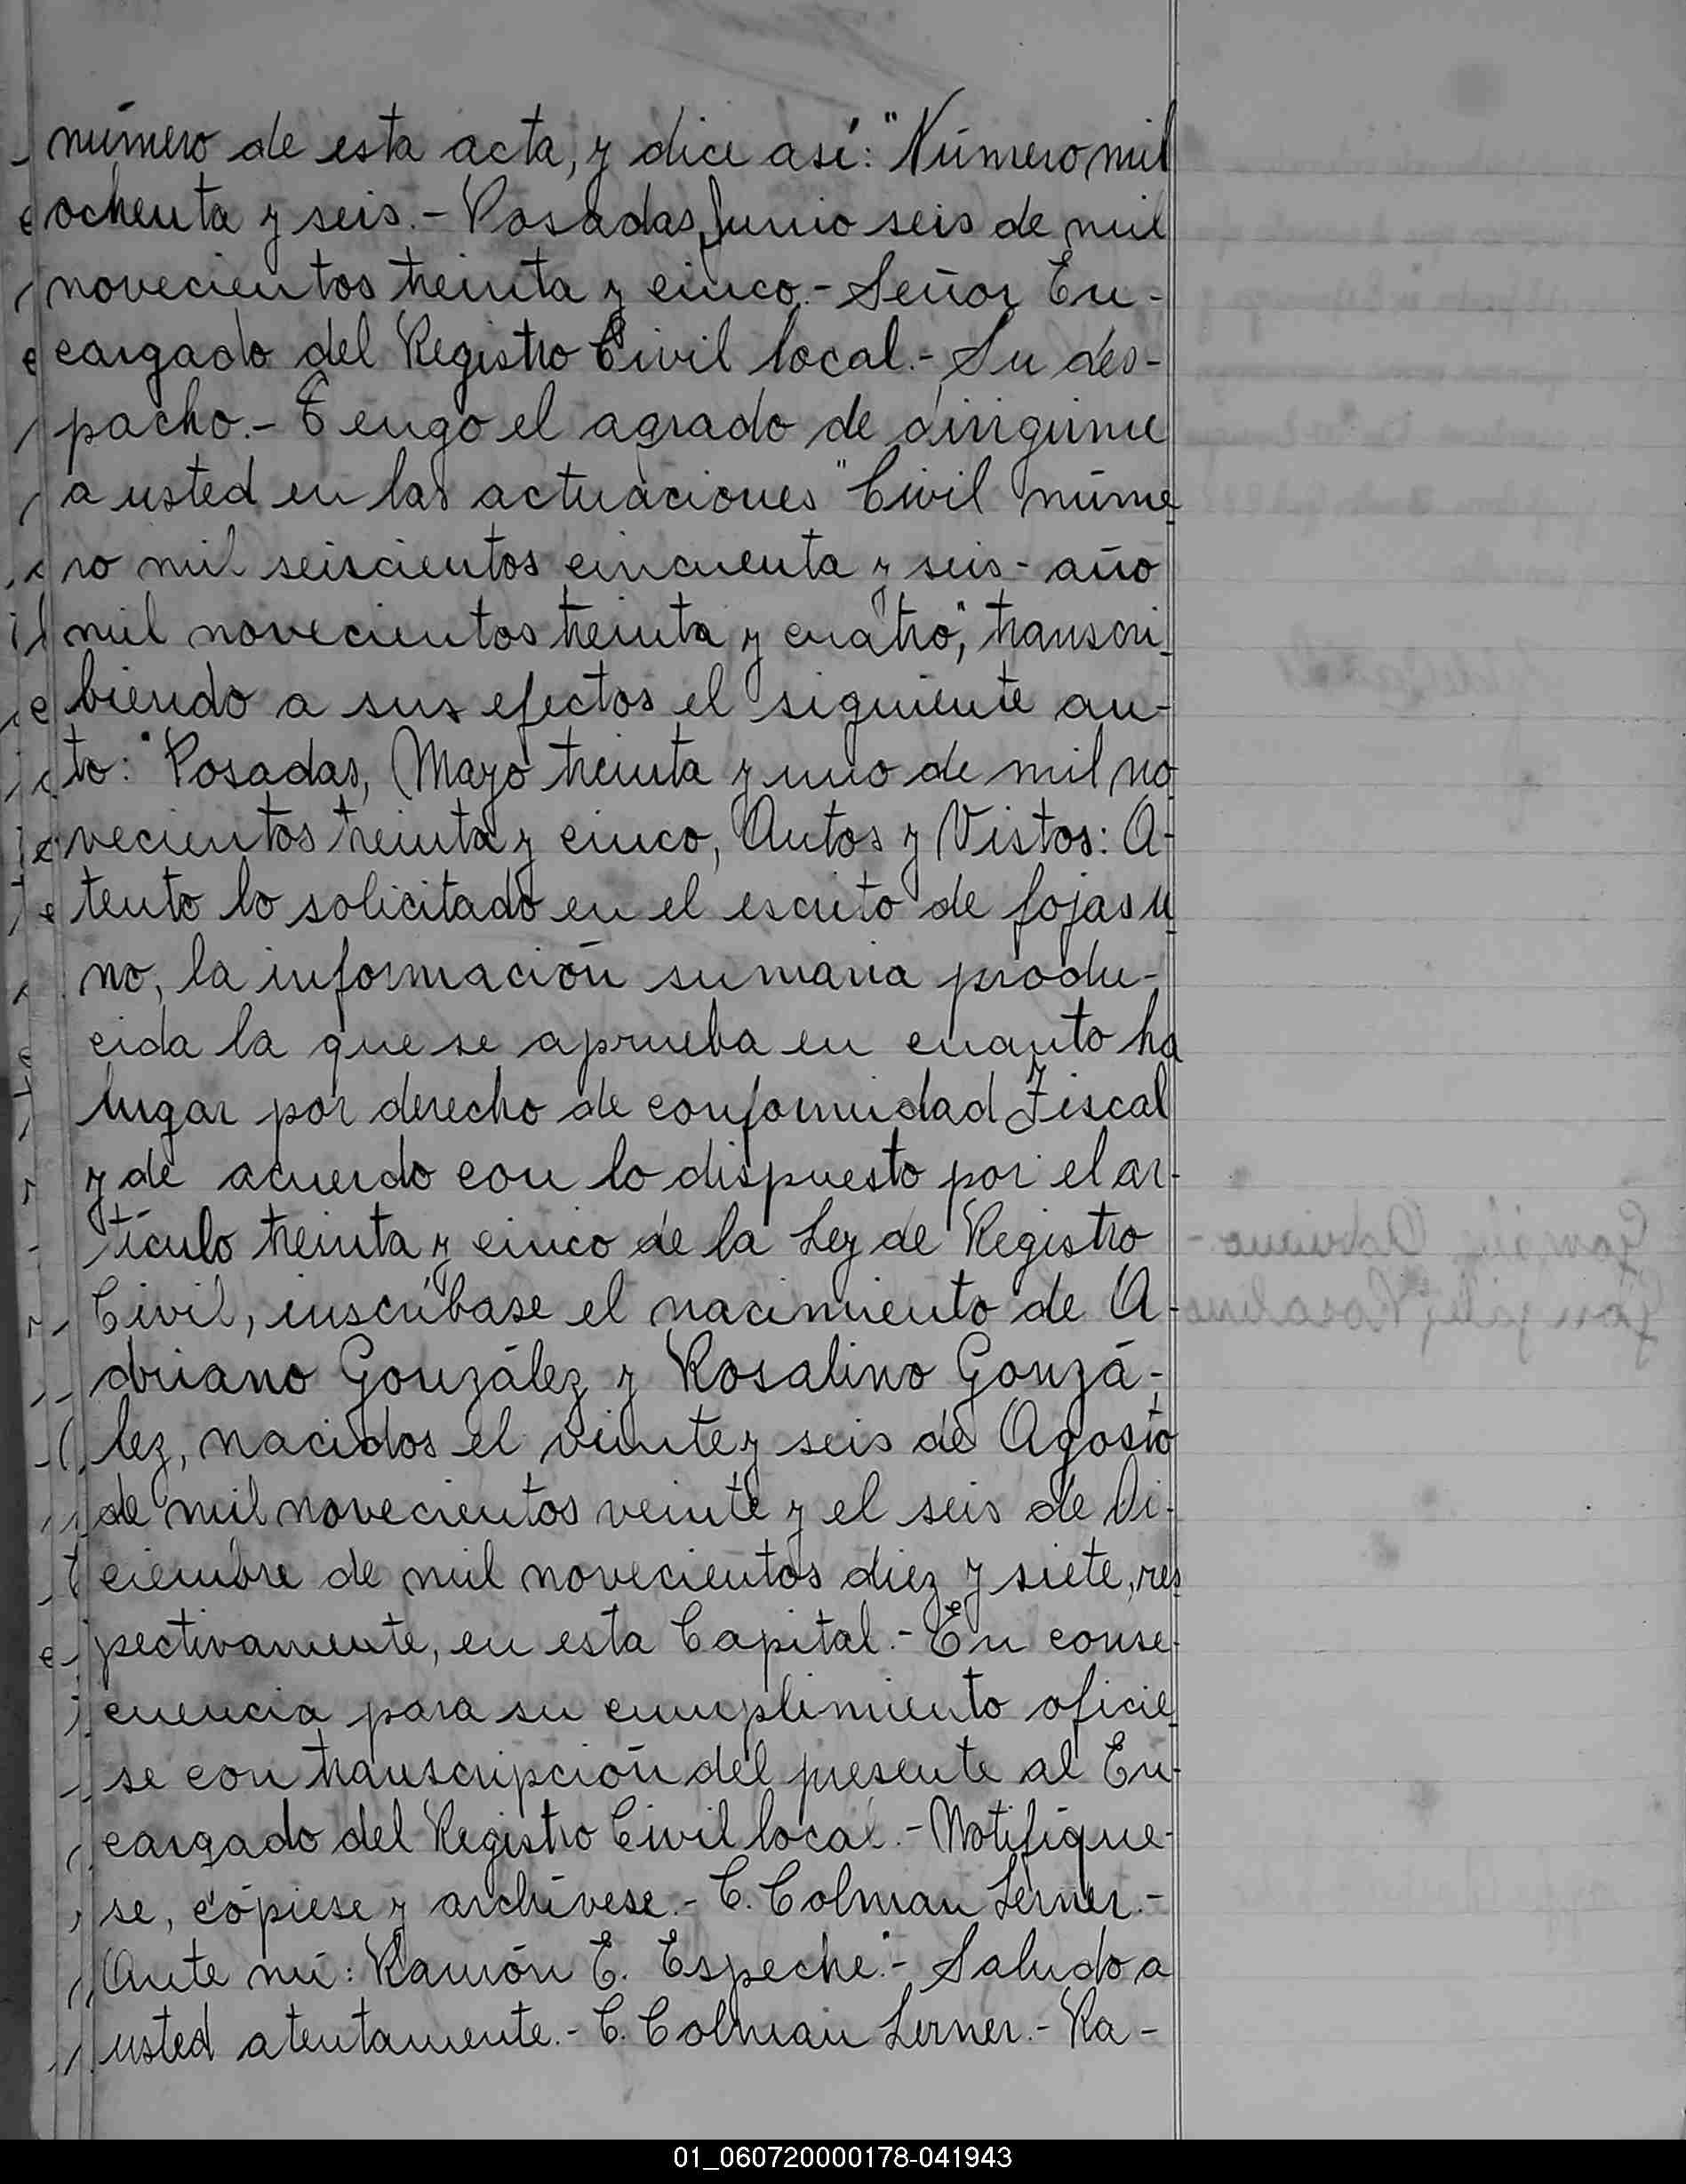 número de esta acta, y dice así: "Número mil
ochenta y seis.- Posadas, Junio seis de mil
novecientos treinta y cinco.- Señor En-
cargado del Registro Civil local.- Su des-
pacho.- Tengo el agrado de dirigirme
a usted en las actuaciones "Civil núme
ro mil seiscientos cincuenta y seis - año
mil novecientos treinta y cuatro", transcri
biendo a sus efectos el siguiente au-
to: "Posadas, Mayo treinta y uno de mil no
vecientos treinta y cinco, Autos y Vistos: A-
tento lo solicitado en el escrito de fojas u
no, la información sumaria produ-
cida la que se aprueba en cuanto ha
lugar por derecho de conformidad Fiscal
y de acuerdo con lo dispuesto por el ar-
tículo treinta y cinco de la Ley de Registro
Civil, inscríbase el nacimiento de A-
driano González y Rosalino Gonzá-
lez, nacidos el veinte y seis de Agosto
de mil novecientos veinte y el seis de Di-
ciembre de mil novecientos diez y siete, res
pectivamente, en esta Capital.- En conse-
cuencia para su cumplimiento oficie
se con transcripción del presente al En-
cargado del Registro Civil local.- Notifíque-
se, cópiese y archívese.- C. Colman Lerner.-
Ante mí: Ramón E. Espeche".- Saludo a
usted atentamente.- C. Colman Lerner.- Ra-
01_060720000178-041943